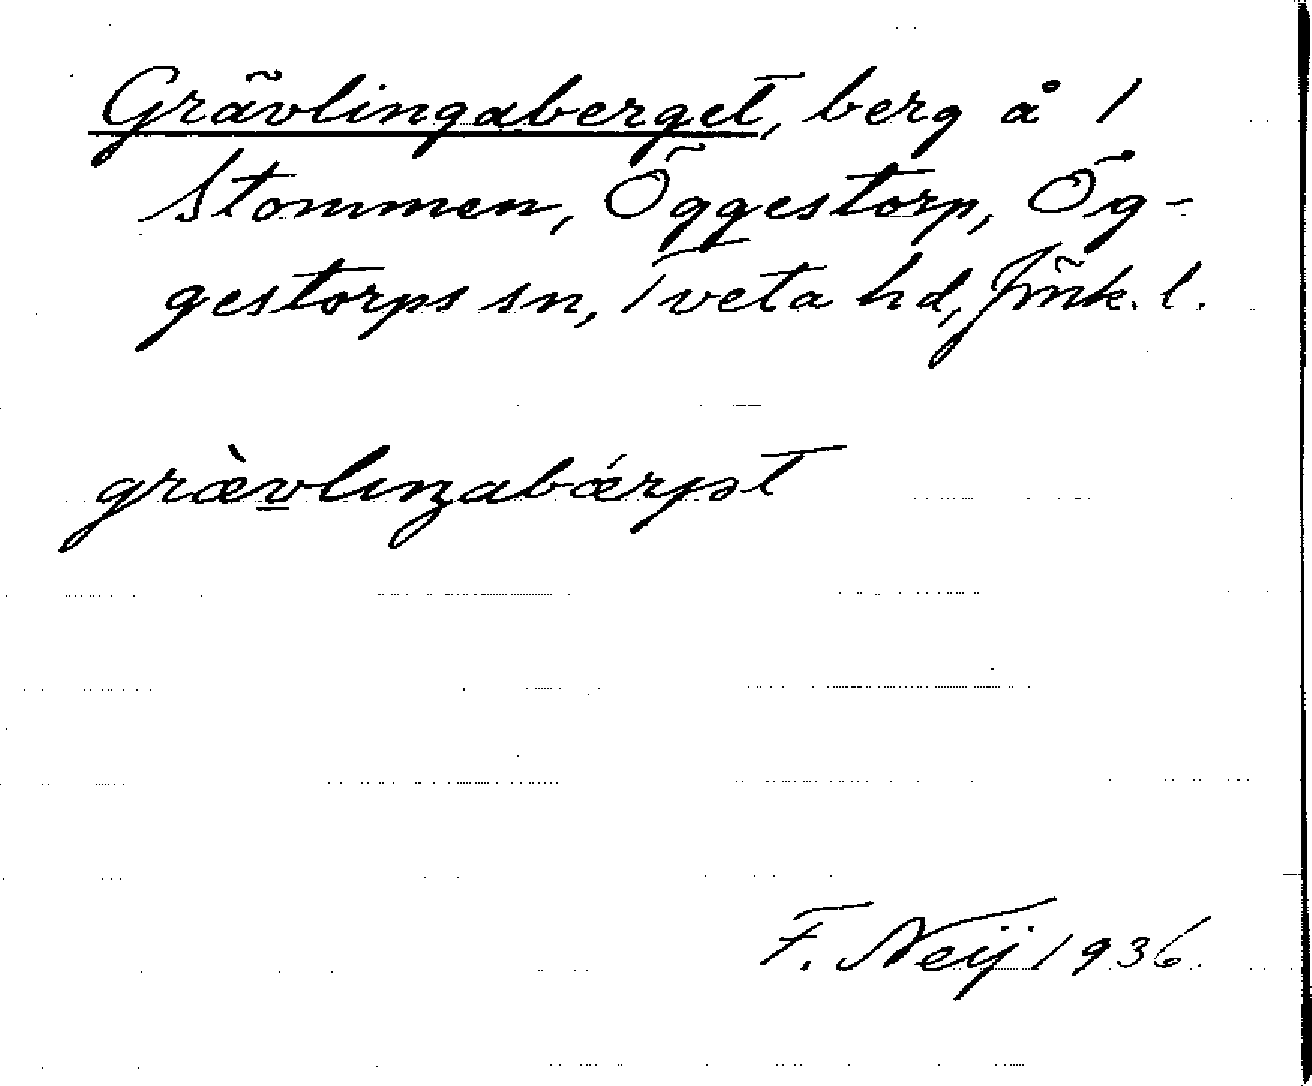 Grävlingaberget, berg å 1
Stommen, Öggestorp, Ög-
gestorps sn, Tveta hd, Jönk. l.
græ̀v̲lıŋabǽrjət
F. Neij 1936